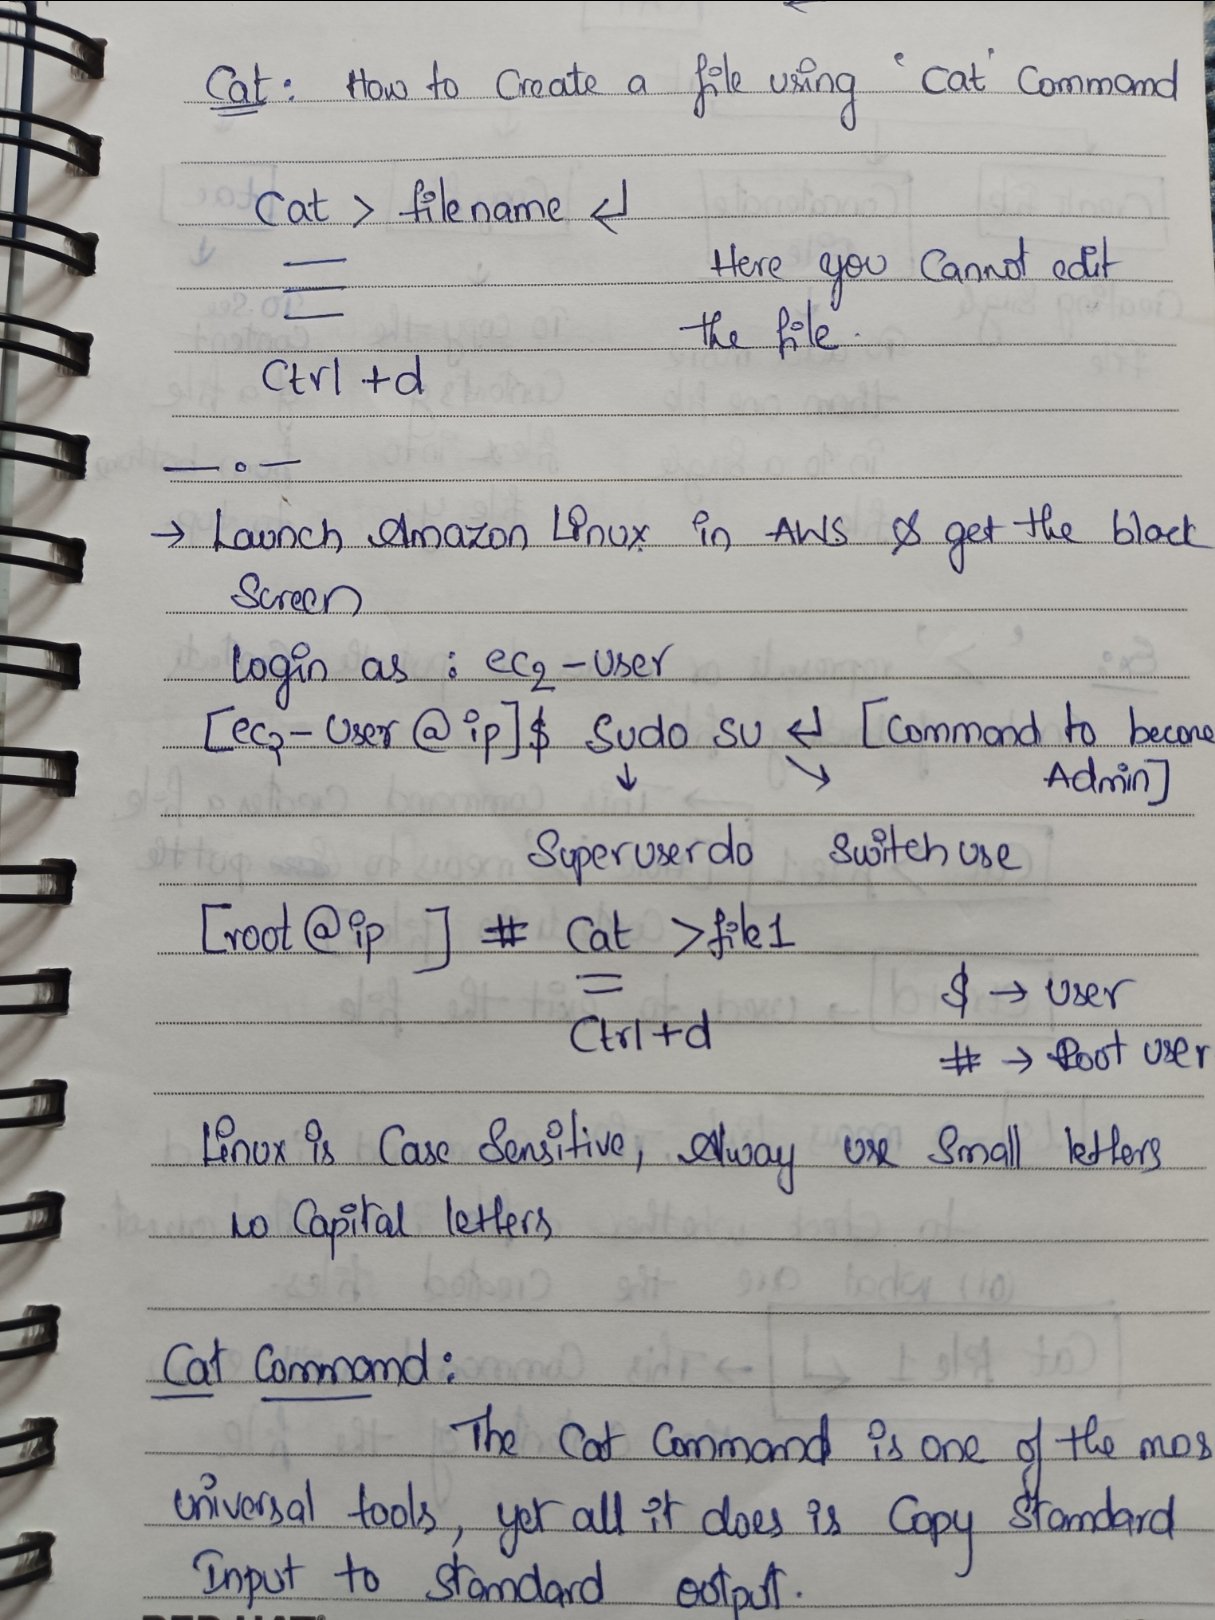 Cat: How to Create a file using 'Cat' Command
Cat > filename ↵
Here you Cannot edit
the file.
Ctrl + d
→ Launch Amazon Linux in AWS & get the black
Screen
login as : ec2-user
[ec2-user@ip]$ Sudo su ↵ [Command to become
Admin]
↓ ↘
Superuserdo Switch use
[root@ip ] # Cat >file1
Ctrl+d
$ → User
# → Root user
Linux is Case Sensitive, Alway use Small letters
no Capital letters
Cat Command:
The Cat Command is one of the mos
universal tools, yet all it does is Copy Standard
Input to standard output.